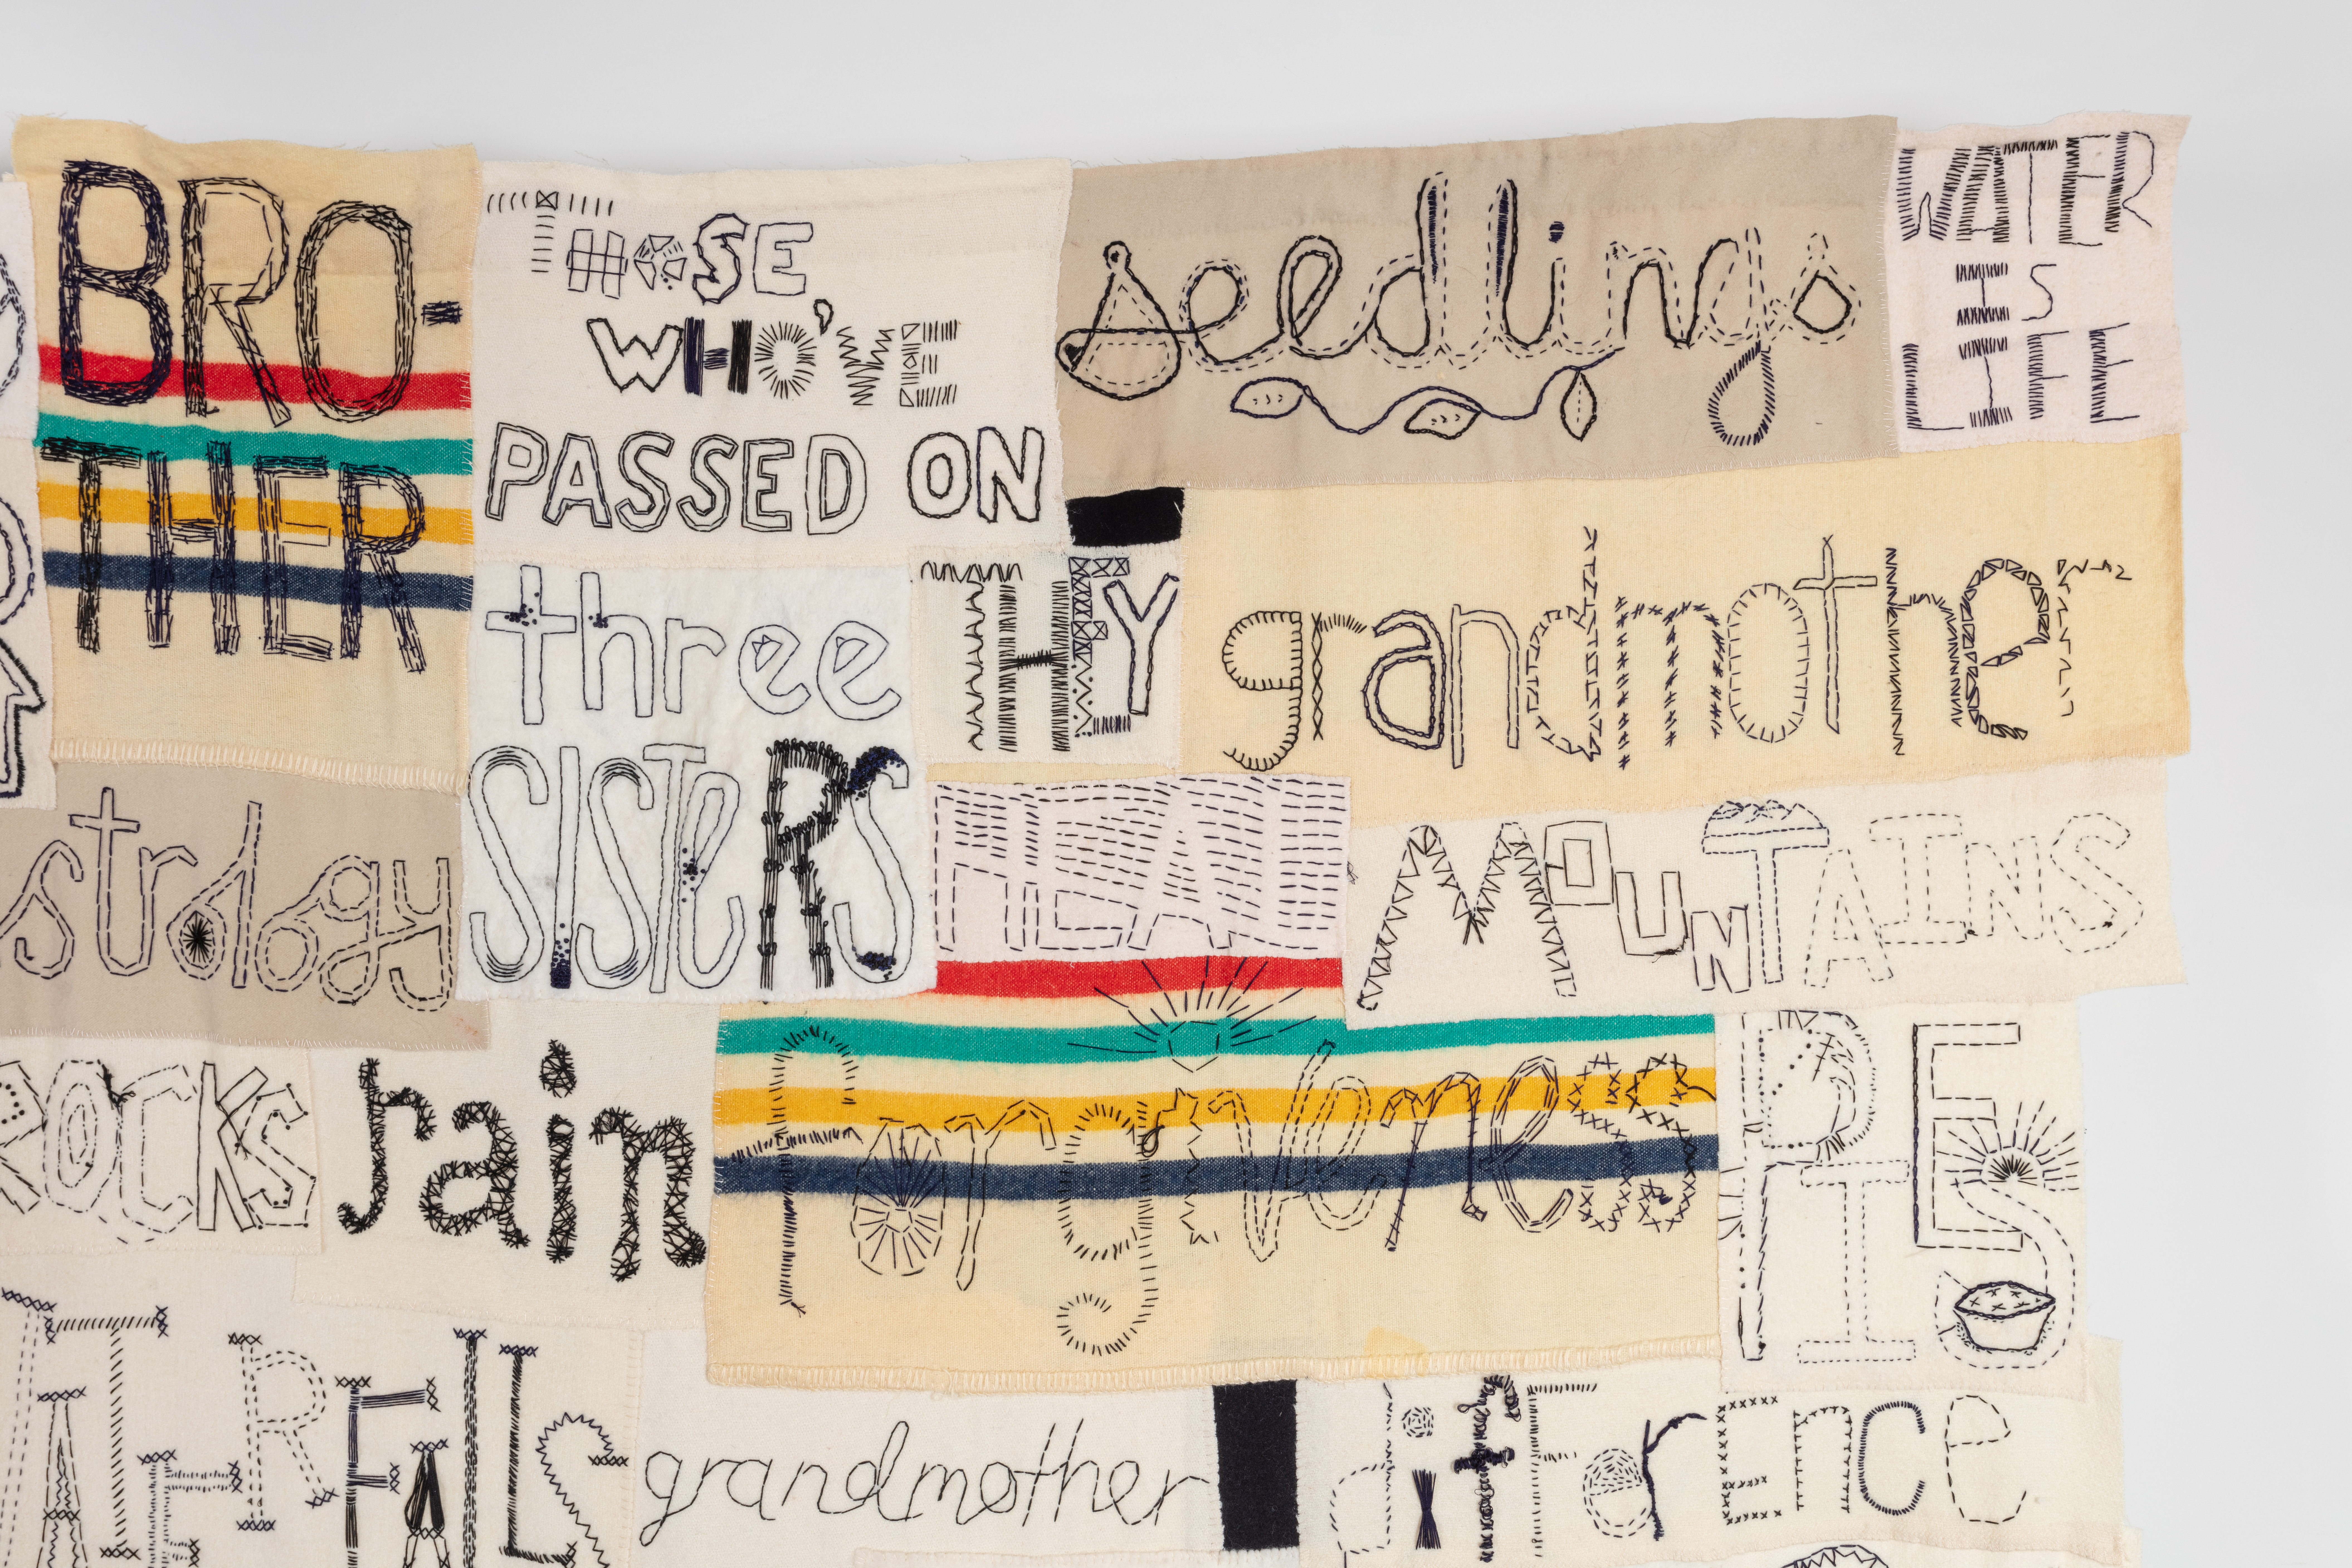 BRO-
THER
THOSE
WHO'VE
PASSED ON
seedlings
WATER
IS
LIFE
three
SISTERS
THEY
grandmother
strology
MOUNTAINS
ROCKS
rain
forgiveness
ATERFALLS
grandmother
difference